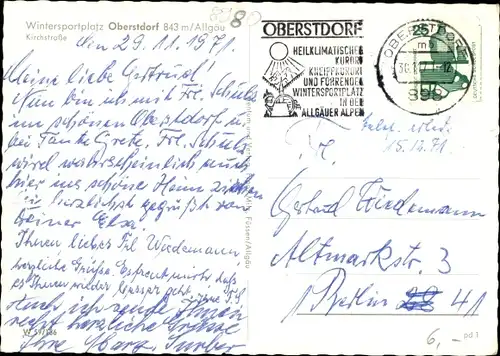 Wintersportplatz Oberstdorf 843 m/Allgäu
Kirchstraße
den 29.11.1971.
Meine liebe Gertrud!
Nun bin ich mit Frl. Schulz
im schönen Oberstdorf u.
bei Tante Grete. Frl. Schulz
wird wahrscheinlich auch
hier ins schöne Haus ziehen
Sei herzlichst gegrüßt von
Deiner Elsa.
Ihnen liebes Frl. Wiedemann
herzliche Grüße. Es freut mich, daß
es Ihnen wieder besser geht. Ihre
Auch ich sende Ihnen
recht herzliche Grüsse
Ihre
OBERSTDORF
HEILKLIMATISCHER
KURORT
KNEIPPKURORT
UND FÜHRENDER
WINTERSPORTPLATZ
IN DEN
ALLGÄUER ALPEN
OBERSTDORF
898
25
15.12.71.
Frl.
Gertrud Wiedemann
Altmarkstr. 3
1 Berlin 41
6,-
pd 1
Füssen/Allgäu